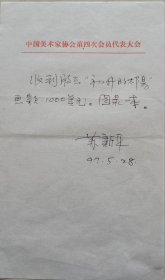 中国美术家协会第四次会员代表大会
收到放玉"和伴的太阳"
画篆 1000美元。图录一本。
苏新平
97.5.28.